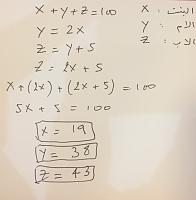 x + y + z = 100
y = 2x
z = y + 5
z = 2x + 5
x + (2x) + (2x + 5) = 100
5x + 5 = 100
x = 19
y = 38
z = 43
البنت : x
الأم : y
الأب : z